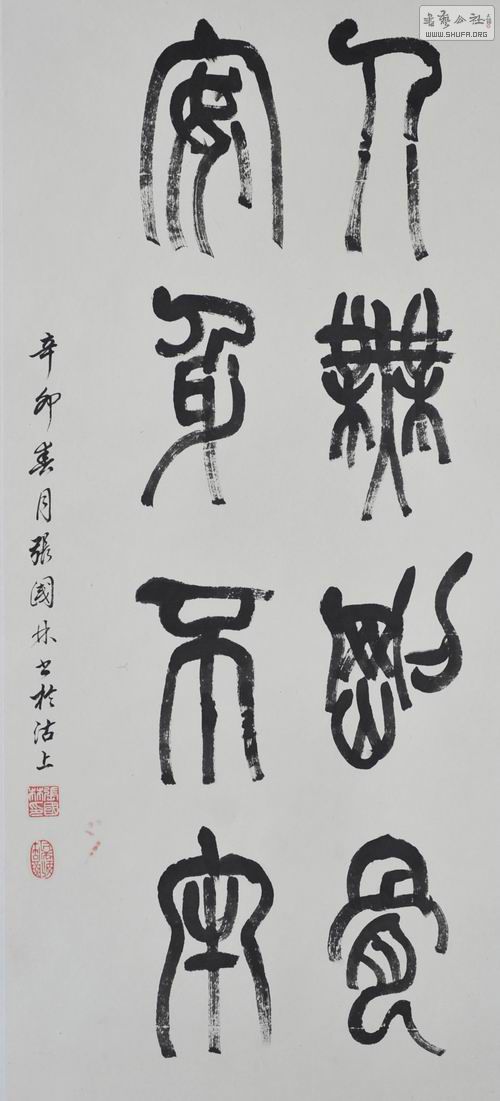 人無剛骨
安身不牢
辛卯春月張國林書於沽上
張國林印
書藝公社
WWW.SHUFA.ORG